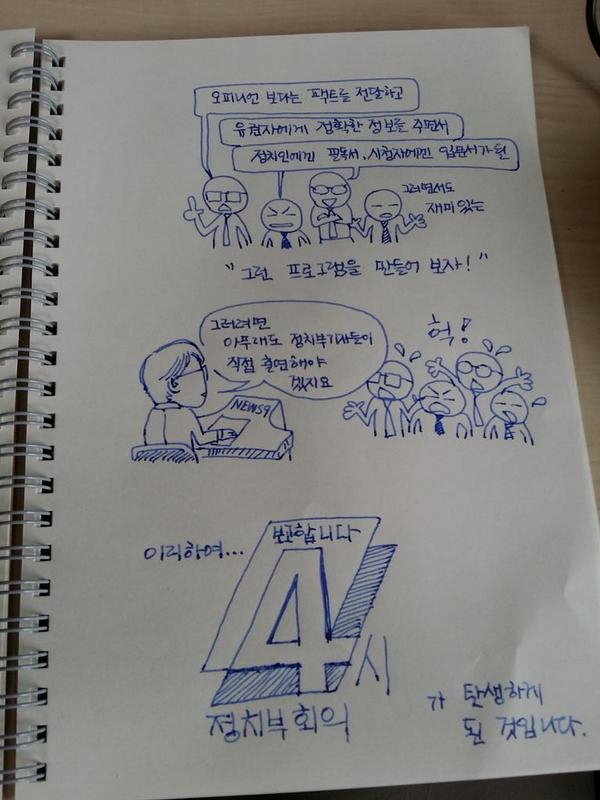 오피니언 보다는 팩트를 전달하고
유권자에게 정확한 정보를 주면서
정치인에겐 필독서, 시청자에겐 입문서가 될
그러면서도
재미있는
"그런 프로그램을 만들어 보자!"
그러려면
아무래도 정치부기자들이
직접 출연해야
겠지요
헉!
NEWS9
이리하여...
보고합니다
4시
정치부회의
가 탄생하게
된 것입니다.